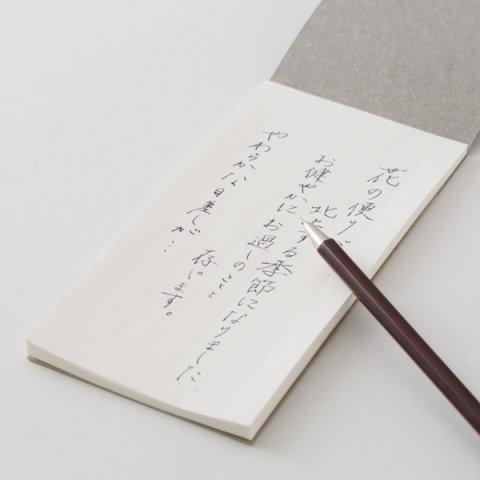 花の便りが
北上する季節になりました
お健やかにお過しのことと
存じます。
やわらかな日差しが…